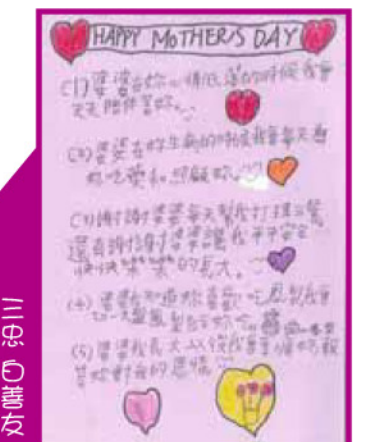 HAPPY MOTHER'S DAY
(1)婆婆在妳心情低落的时候我會
天天陪伴着妳。
(2)婆婆在妳生病的時候我會每天看
妳吃藥和照顧妳。
(3)謝謝婆婆每天幫我打理三餐
還有謝謝婆婆讓我平平安安
快快樂樂的長大。
(4)婆婆我知道妳喜歡吃鳳梨我會
切一大盤鳳梨給妳吃。
(5)婆婆我長大以後我會
答妳對我的恩情
三忠 白善友